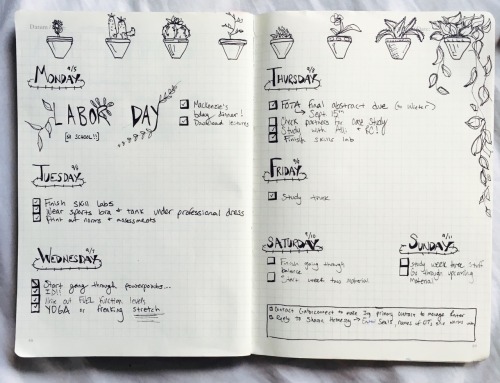 MONDAY 9/5
LABOR DAY
[NO SCHOOL!!]
Mackenzie's
bday dinner!
Download lectures
TUESDAY 9/6
Finish skill labs
Wear sports bra + tank under professional dress
Print out norms + assessments
WEDNESDAY 9/7
Start going through powerpoints...
out FUEL function levels
YOGA or freaking stretch
THURSDAY 9/8
FOTA final abstract due
Sept 15th
Check partners for case study
Study with +
Finish skills lab
FRIDAY 9/9
Study
SATURDAY 9/10
Finish going through
balance
Start week two material
SUNDAY 9/11
Study week three stuff
Go through upcoming
material
Contact to make primary contact to manage
Reply to Shawn → Email, names of OTs